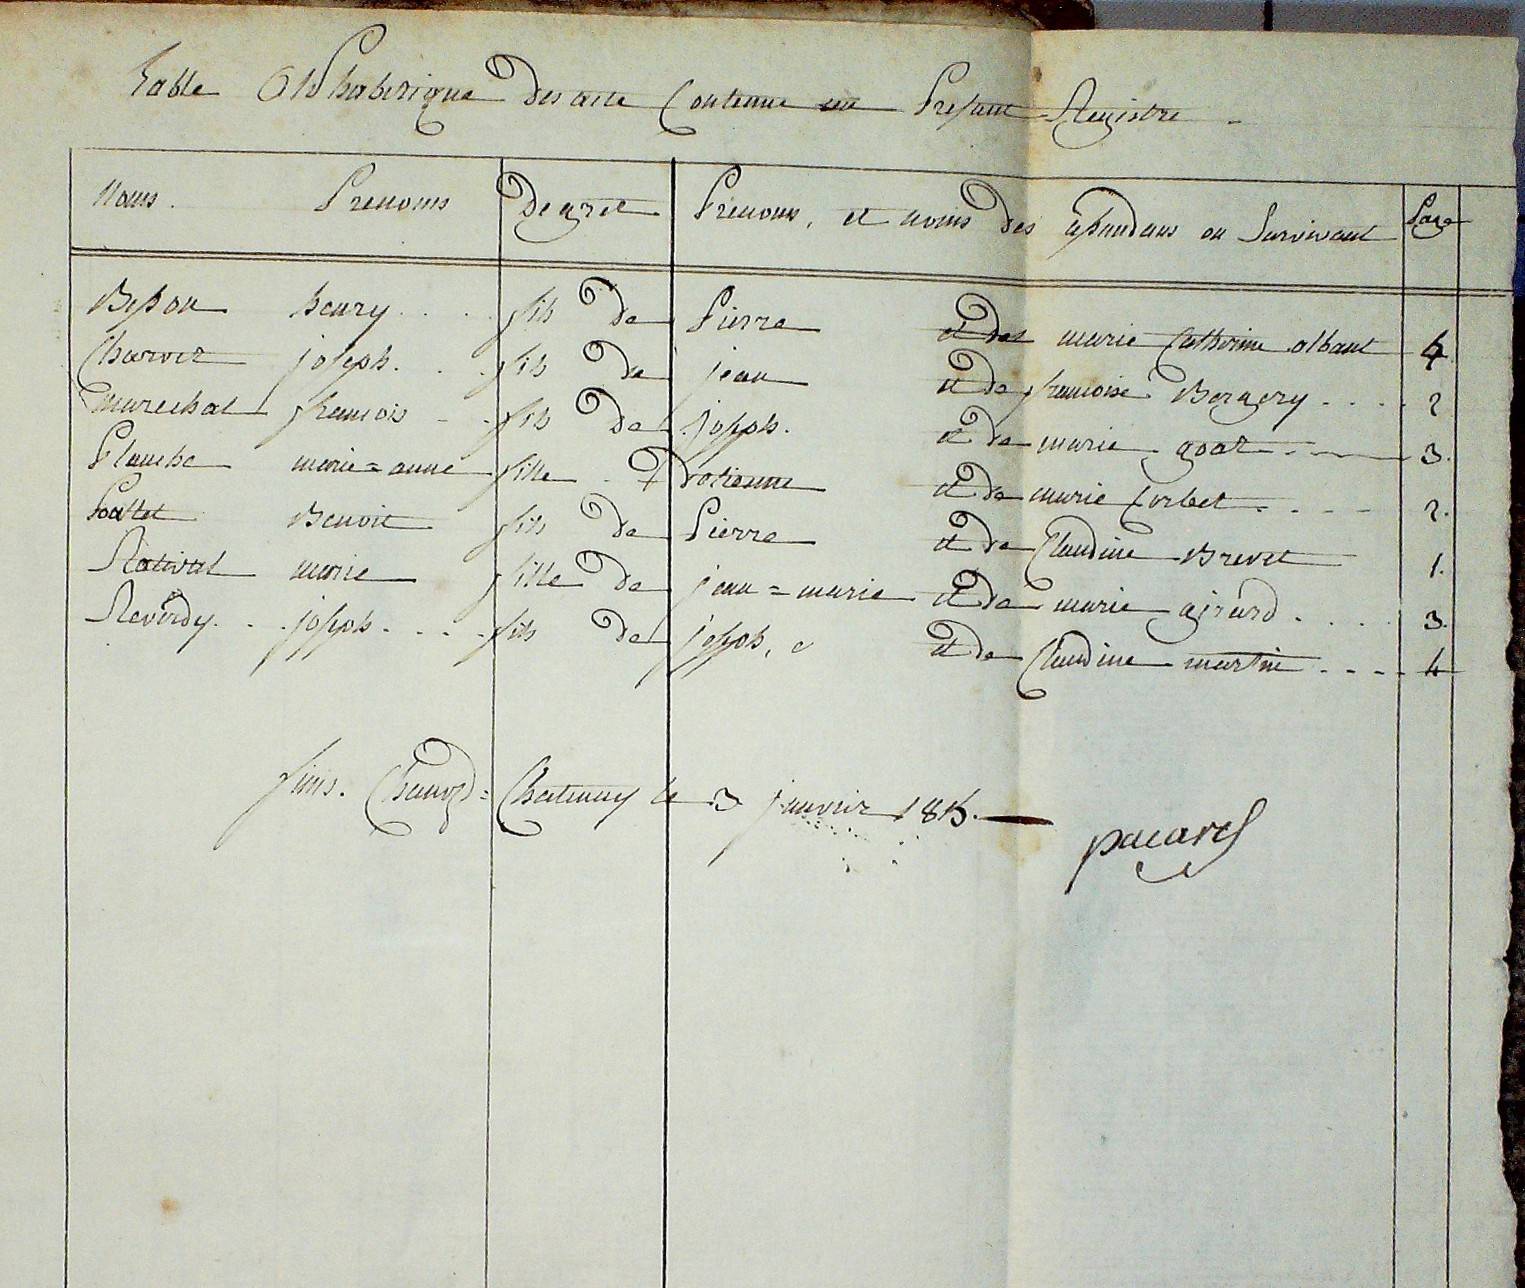 Table Alphabetique des acte Contenue au Presant Registre
Noms. Prenoms Degret Prenoms, et noms des Epoudans ou Survivant Page
Besson henry fils de Pierre et de marie Catherine albant 4
Charvet joseph. fils de jean et de francoise Bergery 2
marechal francois fils de joseph. et de marie goat 3.
Planche marie=anne fille D'etienne et de marie Corbet 2.
Pattet Benoit fils de Pierre et de Claudine Brevet 1.
Rativat marie fille de jean=marie et de marie girard 3.
Reverdy joseph fils de joseph, et de Claudine martin 4
finis. Chatenay le 3 janvier 1815.
pacard